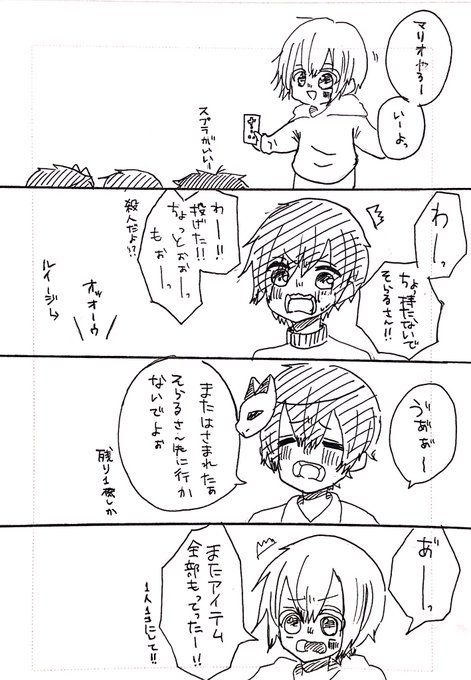 マリオやろー
いーよっ
スプラがいいー
わーーっ
ちょっ持たないで
そらるさん!!
わー!!
投げた!!
ちょっとぉぉーっ
もぉーっ
殺人だよ!?
オッオーウ
ルイージ→
うぁぁ〜
またはさまれたぁ
そらるさん先に行か
ないでよぉ
残り1機しか
あ゛ーーっ
またアイテム
全部もってったー!!
1人1コにして!!